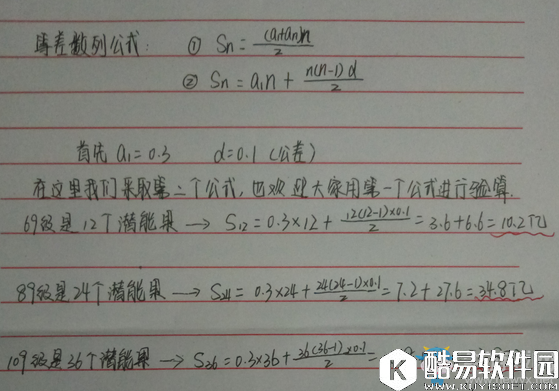 等差数列公式: ① Sn = (a₁+an)n/2
② Sn = a₁n + n(n-1)d/2
首先 a₁=0.3 d=0.1 (公差)
在这里我们采取第二个公式,也欢迎大家用第一个公式进行验算.
69级是12个潜能果 → S₁₂ = 0.3×12 + 12(12-1)×0.1/2 = 3.6+6.6=10.2亿
89级是24个潜能果 → S₂₄ = 0.3×24+ 24(24-1)×0.1/2 = 7.2+27.6=34.8亿
109级是36个潜能果 → S₃₆=0.3×36+ 36(36-1)×0.1/2 =
酷易软件园
WWW.KUYISOFT.COM